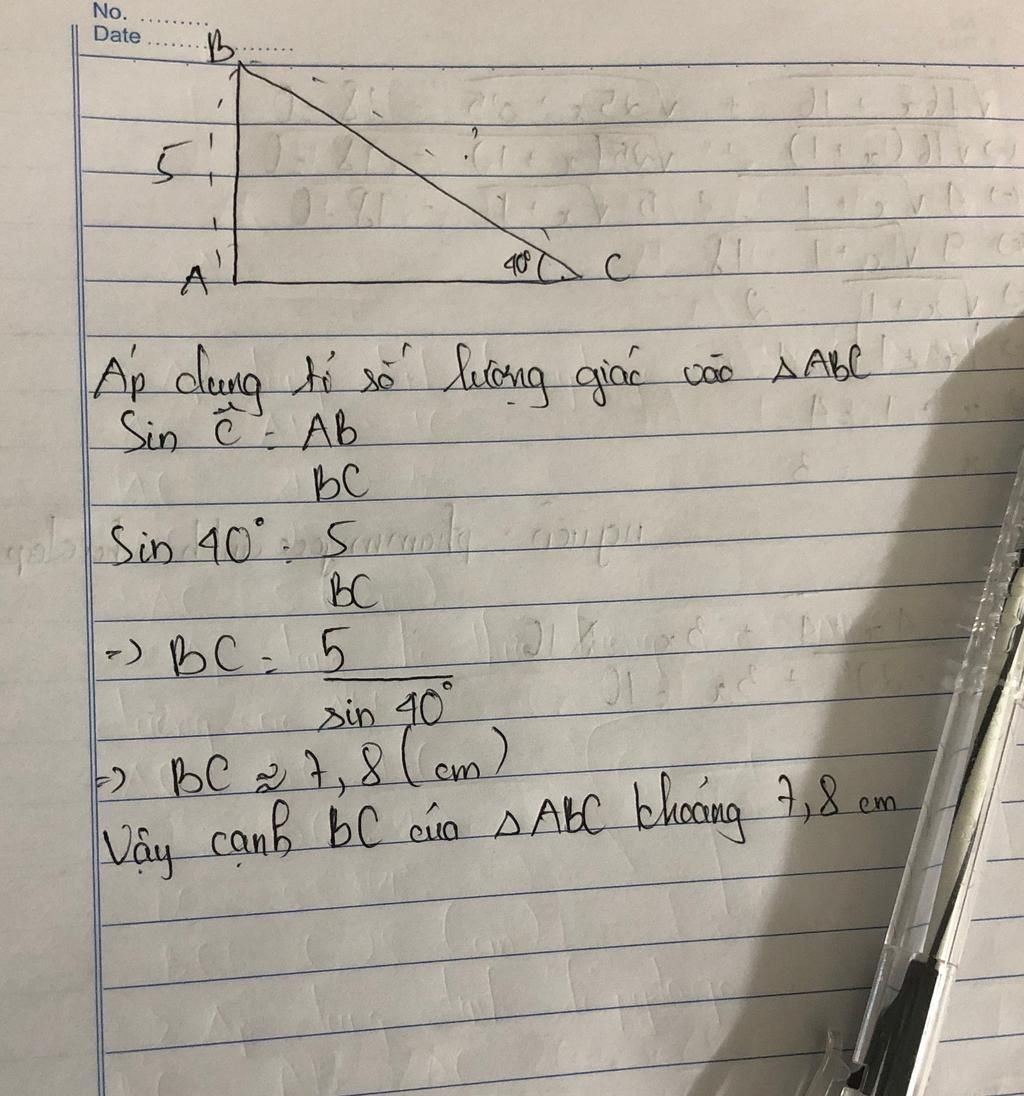 No. .........
Date ......................
B
5
?
40°
A
C
Áp dụng tỉ số lượng giác vào △ABC
Sin Ĉ = AB
BC
Sin 40° = 5
BC
=> BC = 5
sin 40°
=> BC ≈ 7,8 (cm)
Vậy cạnh BC của △ABC khoảng 7,8 cm